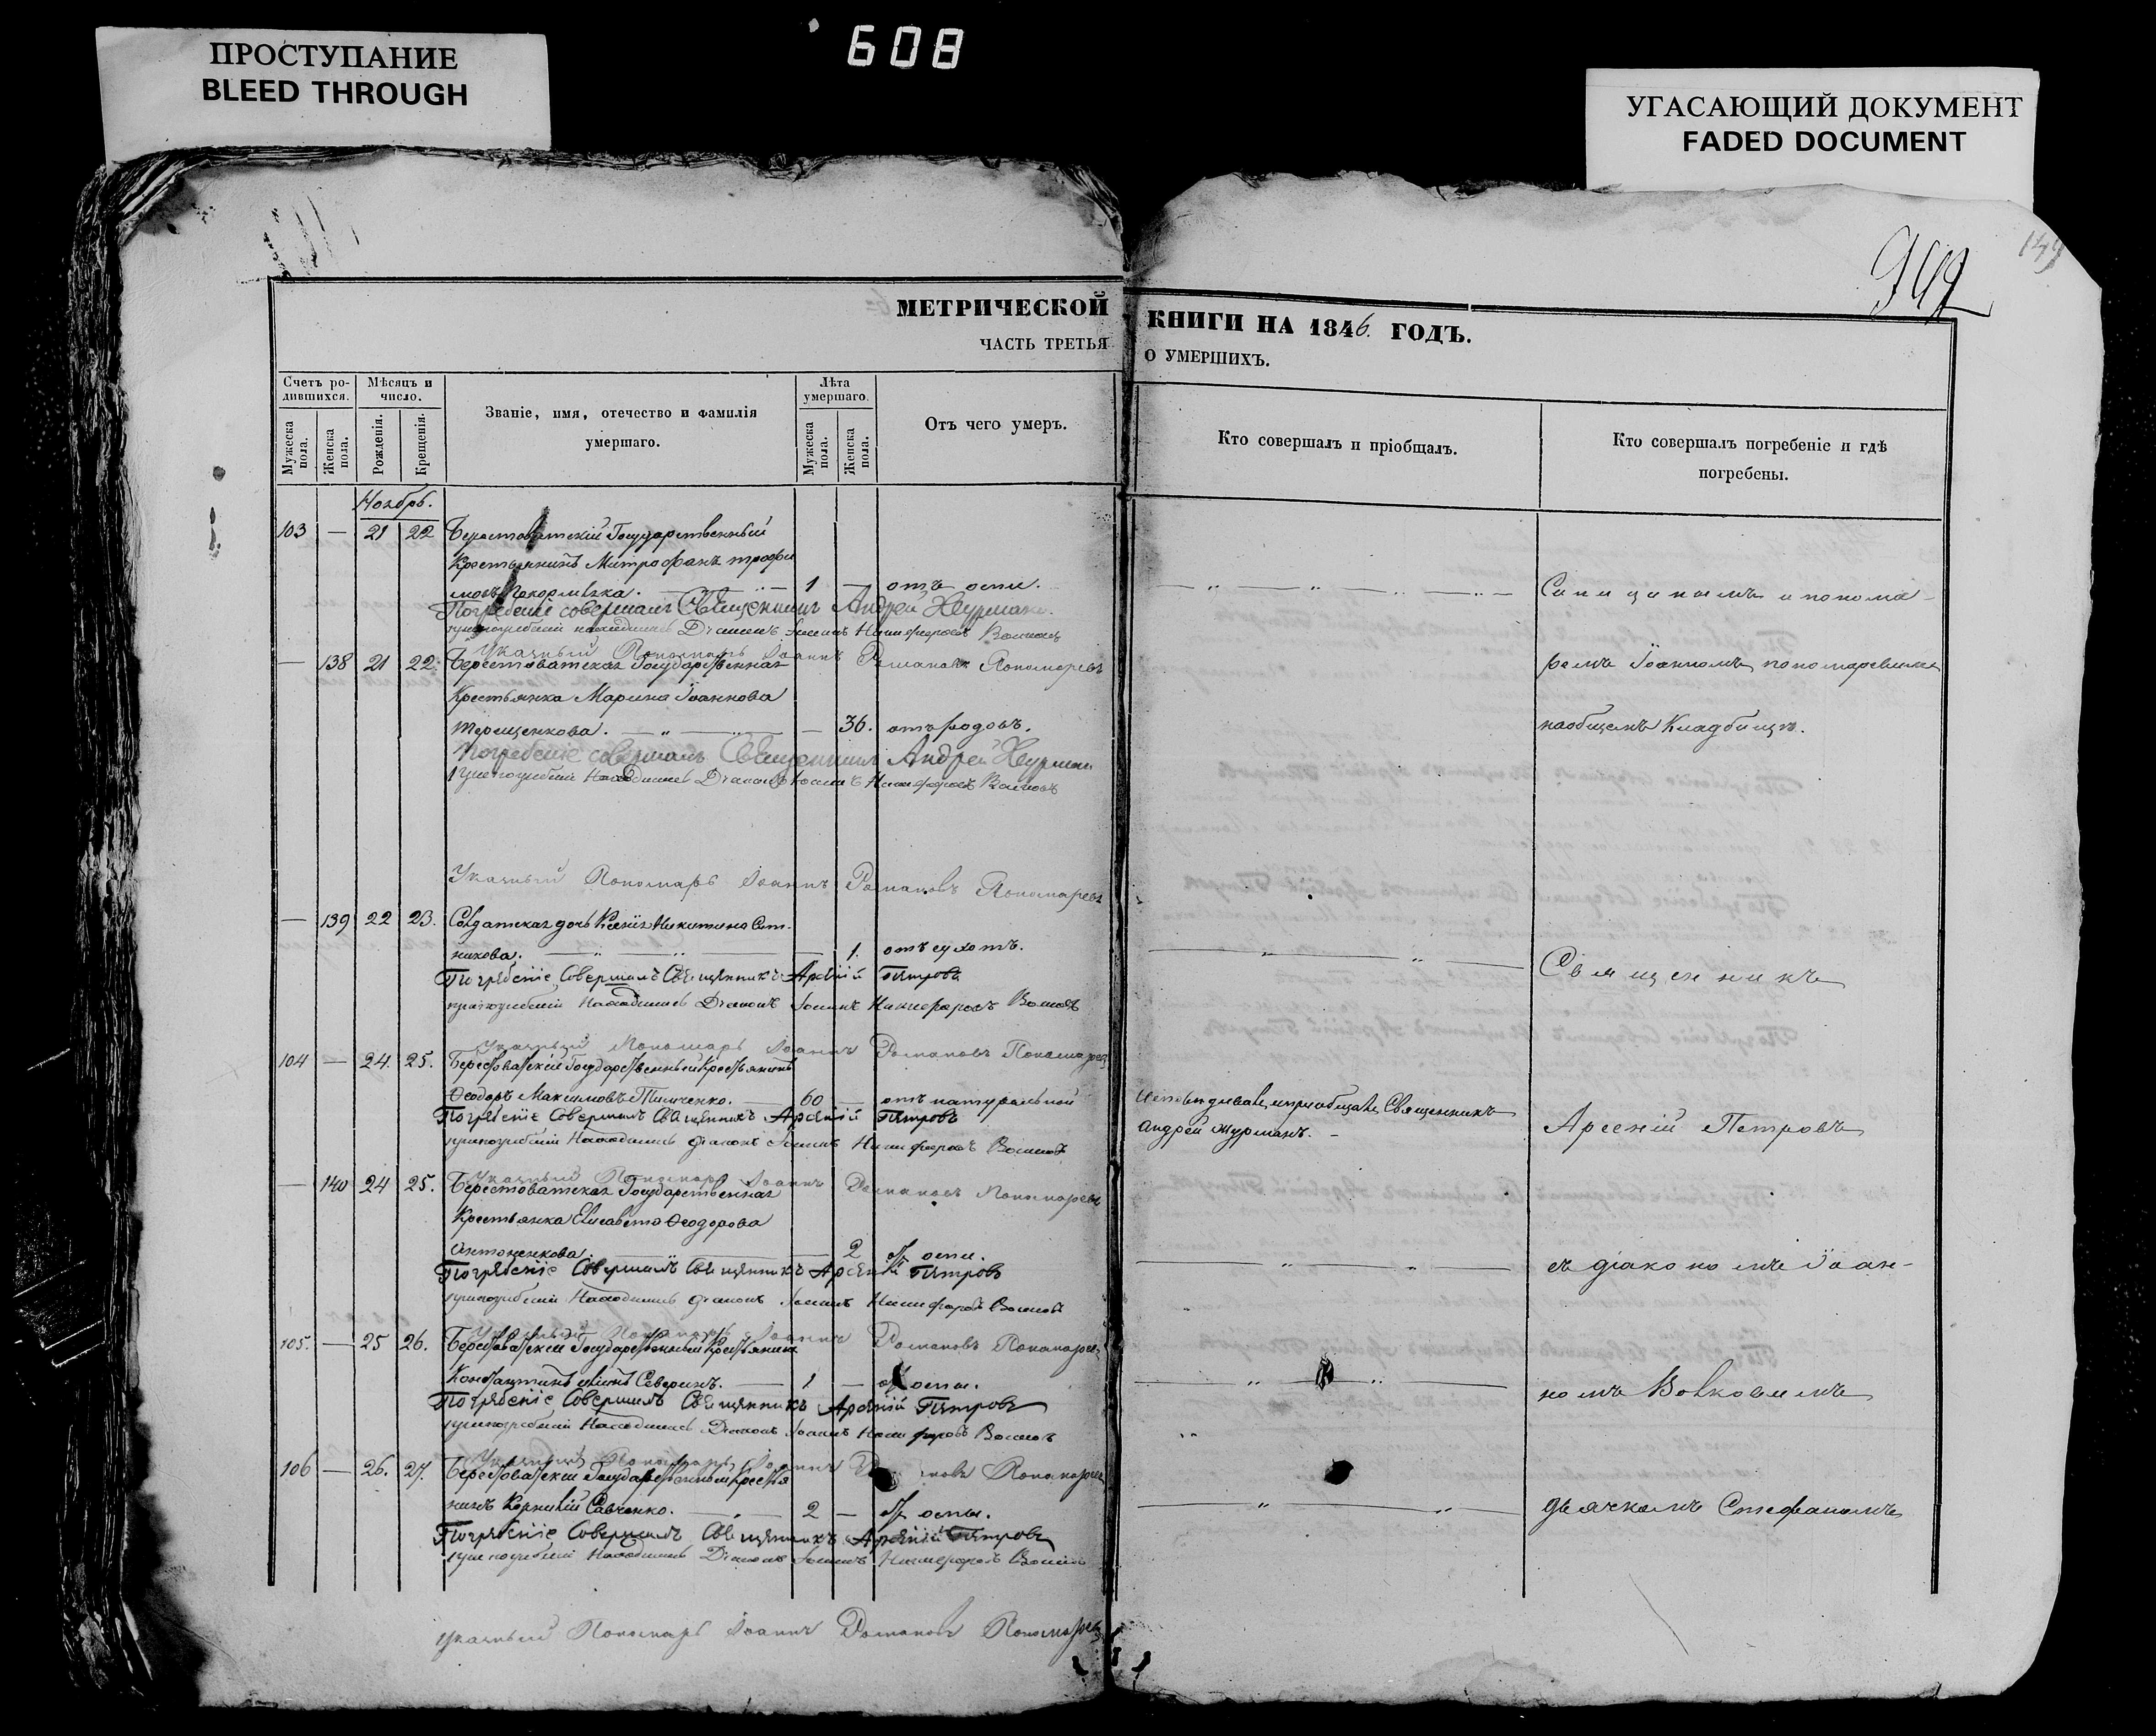 ПРОСТУПАНИЕ
BLEED THROUGH
608
УГАСАЮЩИЙ ДОКУМЕНТ
FADED DOCUMENT
МЕТРИЧЕСКОЙ
КНИГИ НА 1846. ГОДЪ.
ЧАСТЬ ТРЕТЬЯ
О УМЕРШИХЪ.
Счетъ ро-
дившихся.
Мужеска пола.
Женска пола.
Мѣсяцъ и
число.
Рожденія.
Крещенія.
Званіе, имя, отечество и фамилія
умершаго.
Лѣта
умершаго.
Мужеска пола.
Женска пола.
Отъ чего умеръ.
Кто совершалъ и пріобщалъ.
Кто совершалъ погребеніе и гдѣ
погребены.
Ноябрь.
103 — 21 22 Берестоватскій Государственный
Крестьянинъ Митрофанъ Трофи
мовъ 1 — отъ оспы.
Погребеніе совершалъ Священникъ Андрей Журманъ.
Діаконъ Іоаннъ Никифоровъ
Указный Пономарь Іоаннъ Романовъ Пономаревъ
— 138 21 22. Берестоватская Государственная
Крестьянка Марина Іоаннова
Терещенкова. — 36. отъ родовъ.
Погребеніе совершалъ Священникъ Андрей Журманъ
При погребеніи находился Діаконъ Іоаннъ Никифоровъ
Указный Пономарь Іоаннъ Романовъ Пономаревъ
— 139 22 23. Солдатская дочь Ксенія Никитина Сит-
никова. — 1. отъ сухотъ.
Погребеніе Совершалъ Священникъ Арсеній Петровъ
при погребеніи Находился Діаконъ Іоаннъ Никифоровъ
Указный Пономарь Іоаннъ Романовъ Пономаревъ
104 — 24. 25. Берестоватскій Государственный Крестьянинъ
Ѳеодоръ Максимовъ 60 — отъ натуральной
Погребеніе Совершалъ Священникъ Арсеній Петровъ
при погребеніи Находился Діаконъ Іоаннъ Никифоровъ
Указный Пономарь Іоаннъ Романовъ Пономаревъ
— 140 24 25. Берестоватская Государственная
Крестьянка Елисавета Ѳеодорова
Антоненкова. — 2 отъ оспы.
Погребеніе Совершалъ Священникъ Арсеній Петровъ
при погребеніи Находился Діаконъ Іоаннъ Никифоровъ
Указный Пономарь Іоаннъ Романовъ Пономаревъ
105. — 25 26. Берестоватскій Государственный Крестьянинъ
Константинъ Северинъ. 1 — отъ оспы.
Погребеніе Совершалъ Священникъ Арсеній Петровъ
при погребеніи Находился Діаконъ Іоаннъ Никифоровъ
Указный Пономарь Іоаннъ Романовъ Пономаревъ
106 — 26. 27. Берестоватскій Государственный Крестья
нинъ Корнилій Савченко. 2 — отъ оспы.
Погребеніе Совершалъ Священникъ Арсеній Петровъ
при погребеніи Находился Діаконъ Іоаннъ Никифоровъ
Указный Пономарь Іоаннъ Романовъ Пономаревъ
исповѣдывалъ и пріобщалъ Священникъ
Андрей Журманъ.
и понома-
ремъ Іоанномъ Пономаревымъ
на общемъ Кладбищѣ.
Священникъ
Арсеній Петровъ
съ діакономъ Іоан-
номъ Волковымъ
дьячкомъ Стефаномъ